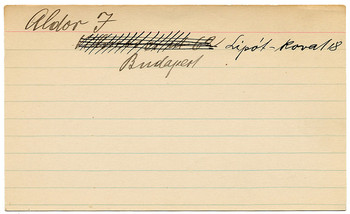 Aldor J
Lipót-Korut 18
Budapest